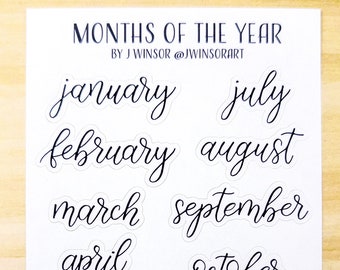 MONTHS OF THE YEAR
BY J WINSOR @JWINSORART
january
july
february
august
march
september
april
october